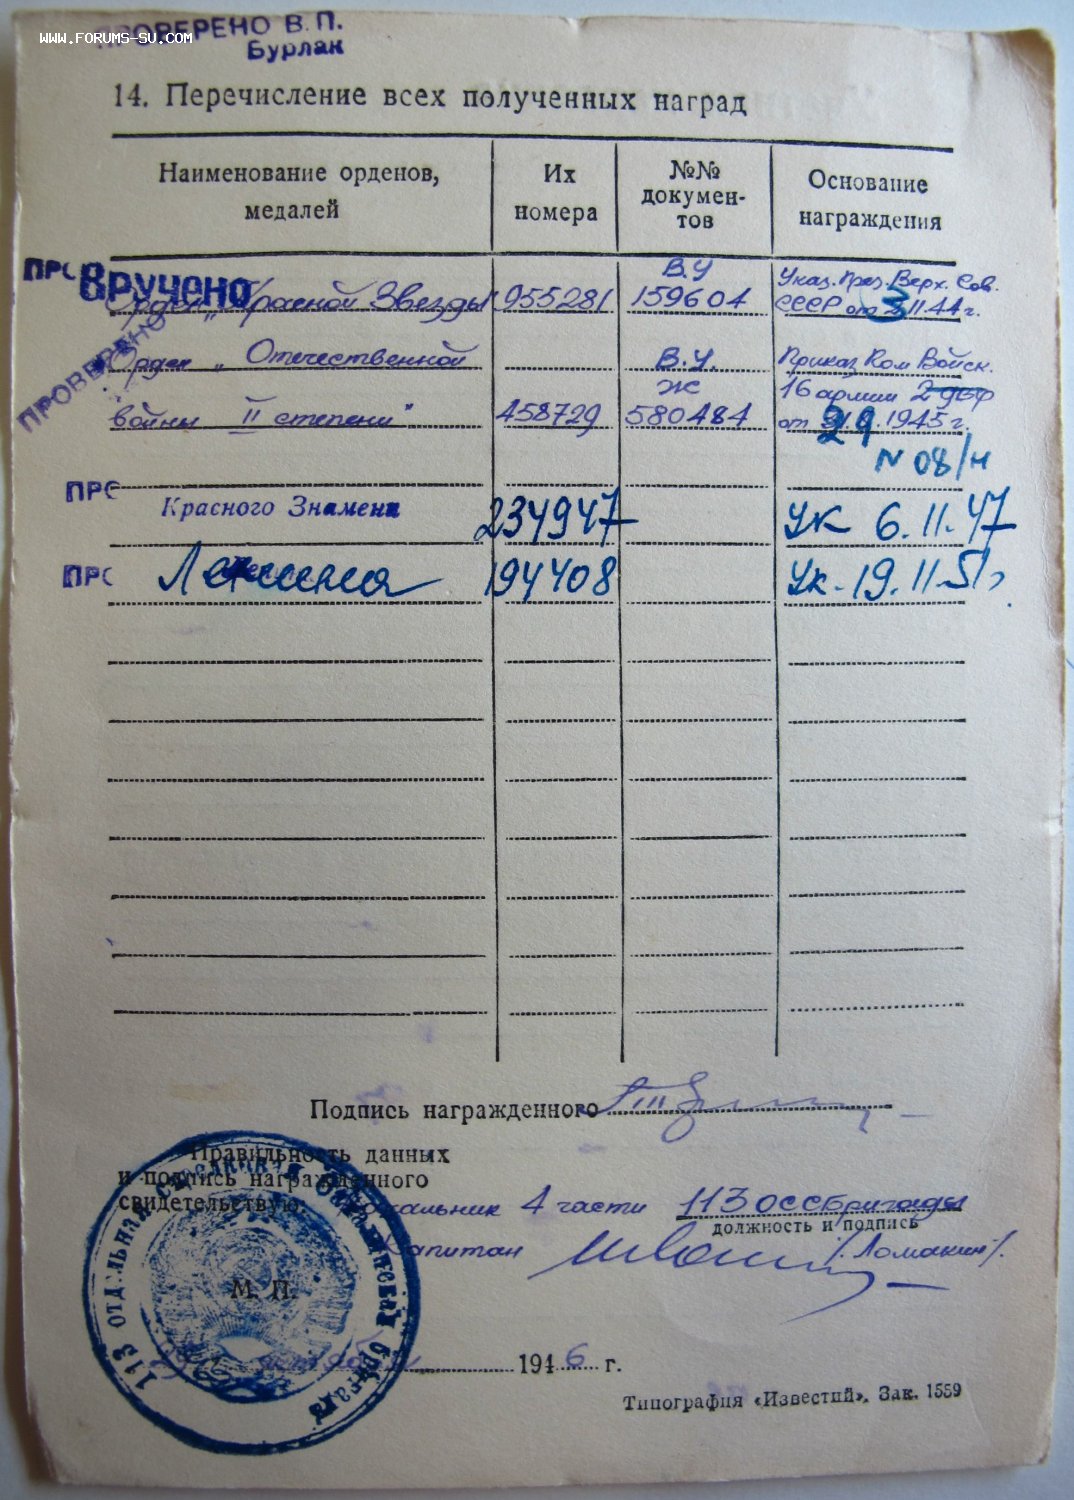 ПРОВЕРЕНО В. П.
www.forums-su.com
Бурлак
14. Перечисление всех полученных наград
Наименование орденов, медалей
Их номера
№№ докумен-тов
Основание награждения
ПРО
Вручено
Орден „Красной Звезды" 955281 В.У 159604 Указ. През. Верх. Сов. СССР от 3.11.44 г.
ПРОВЕРЕНО
Орден „Отечественной В.У. Приказ Ком Войск.
ж 16 армии 2 двф
войны II степени" 458729 580484 от 29.9.1945 г.
N 08/н
ПРО
Красного Знамени 234947 Ук 6.11.47
ПРО
Ленина 194408 Ук. 19.11.51 г
Подпись награжденного
Правильность данных
и подпись награжденного
свидетельствую: Начальник 4 части 113 осСбригады
должность и подпись
Капитан /Ломакин/.
М. П.
113 отдельная стрелковая Сахалинская бригада
1946 г.
Типография «Известий». Зак. 1559